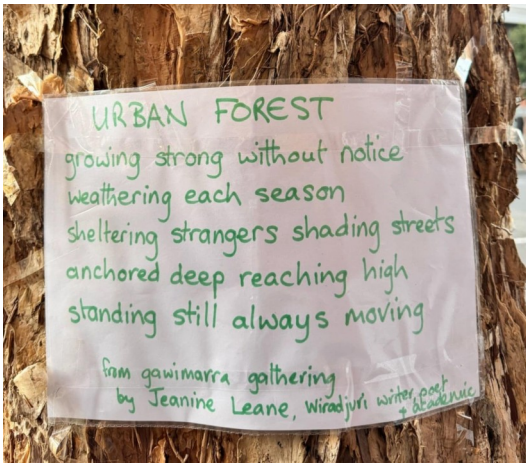 URBAN FOREST
growing strong without notice
weathering each season
sheltering strangers shading streets
anchored deep reaching high
standing still always moving
from gawimarra gathering
by Jeanine Leane, Wiradjuri writer, poet
+ academic